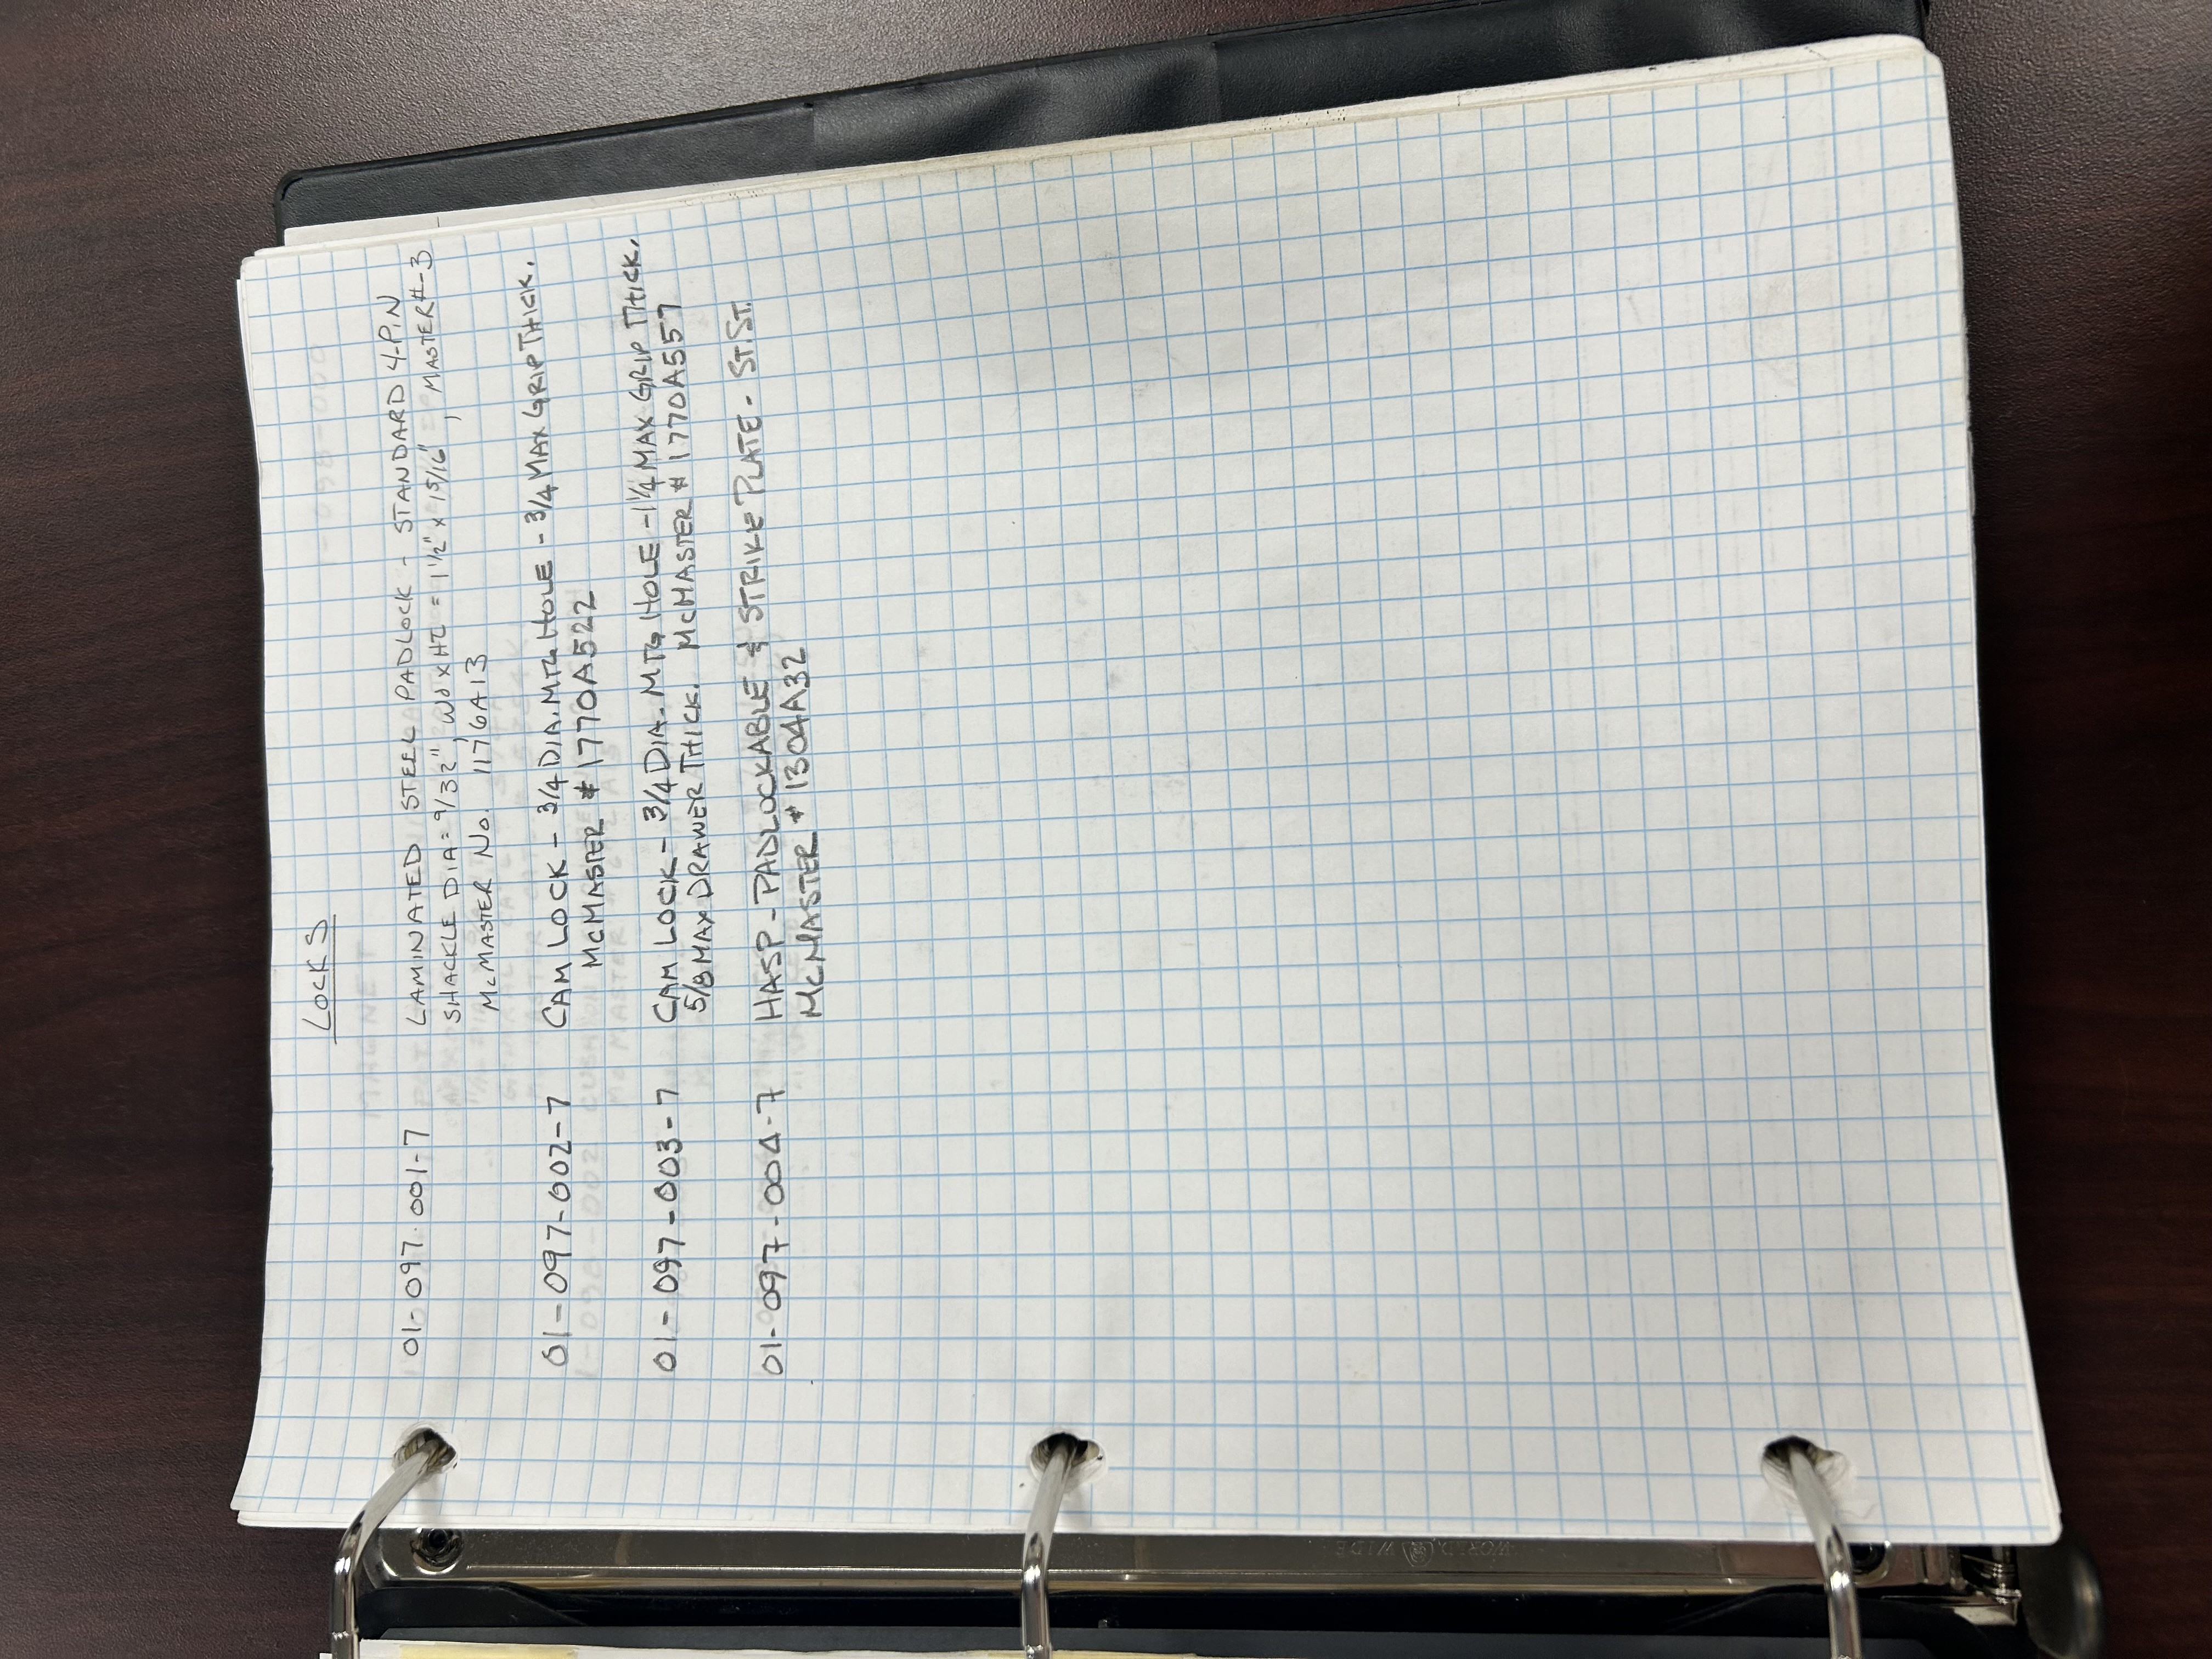 LOCKS
01-097-001-7 LAMINATED STEEL PADLOCK - STANDARD 4-PIN
SHACKLE DIA = 9/32", WD X HT = 1 1/2" x 1 5/16", MASTER #-3
McMASTER No. 1176A13
01-097-002-7 CAM LOCK - 3/4 DIA. MTG HOLE - 3/4 MAX GRIP THICK.
McMASTER # 1770A522
01-097-003-7 CAM LOCK - 3/4 DIA. MTG HOLE - 1 1/4 MAX GRIP THICK.
5/8 MAX DRAWER THICK. McMASTER # 1770A557
01-097-004-7 HASP - PADLOCKABLE & STRIKE PLATE - ST. ST.
McMASTER # 1304A32
WORLD WIDE